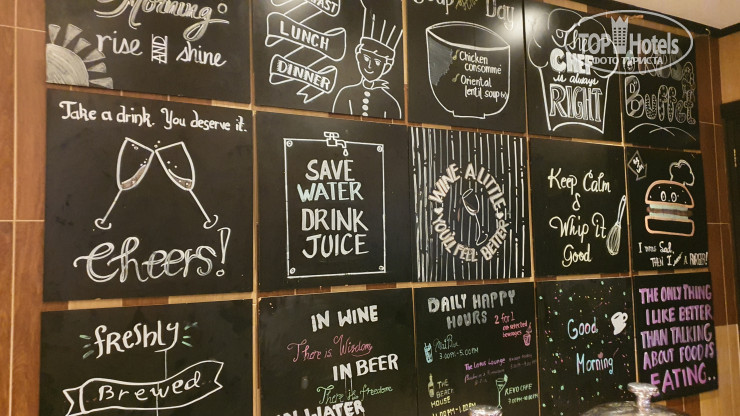 Morning!
rise AND shine
LUNCH
DINNER
Day
Chicken
consommé
Oriental
lentil soup
The
CHEF
is always
RIGHT
Buffet
TOPHotels
ФОТО ТУРИСТА
Take a drink. You deserve it.
Cheers!
SAVE
WATER
DRINK
JUICE
WINE A LITTLE
YOU'LL FEEL BETTER
Keep Calm
&
Whip It
Good
I was Sad,
then I
freshly
Brewed
IN WINE
There is Wisdom
IN BEER
There is freedom
IN WATER
DAILY HAPPY
HOURS
2 for 1
on selected
beverages
3.00PM-5.00PM
The Lotus Lounge
THE BEACH
HOUSE
KEVO CAFE
Good
Morning
THE ONLY THING
I LIKE BETTER
THAN TALKING
ABOUT FOOD IS
EATING..